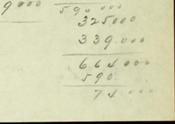 9000 590.000
325000
339.000
664.000
590.
74.000